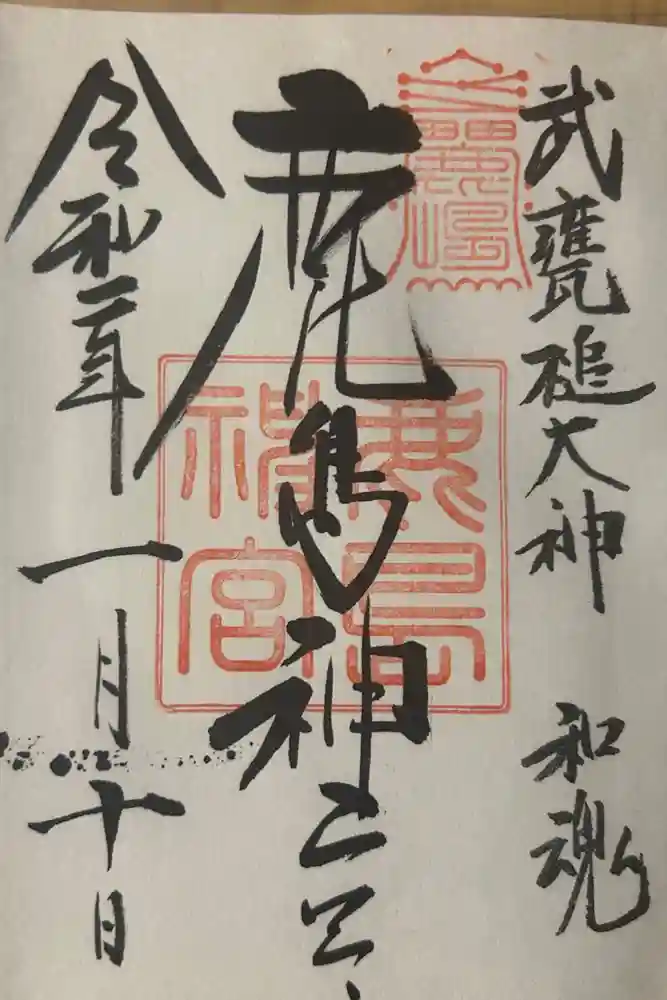 武甕槌大神 和魂
鹿島神宮
鹿島神宮
令和二年 一月十日